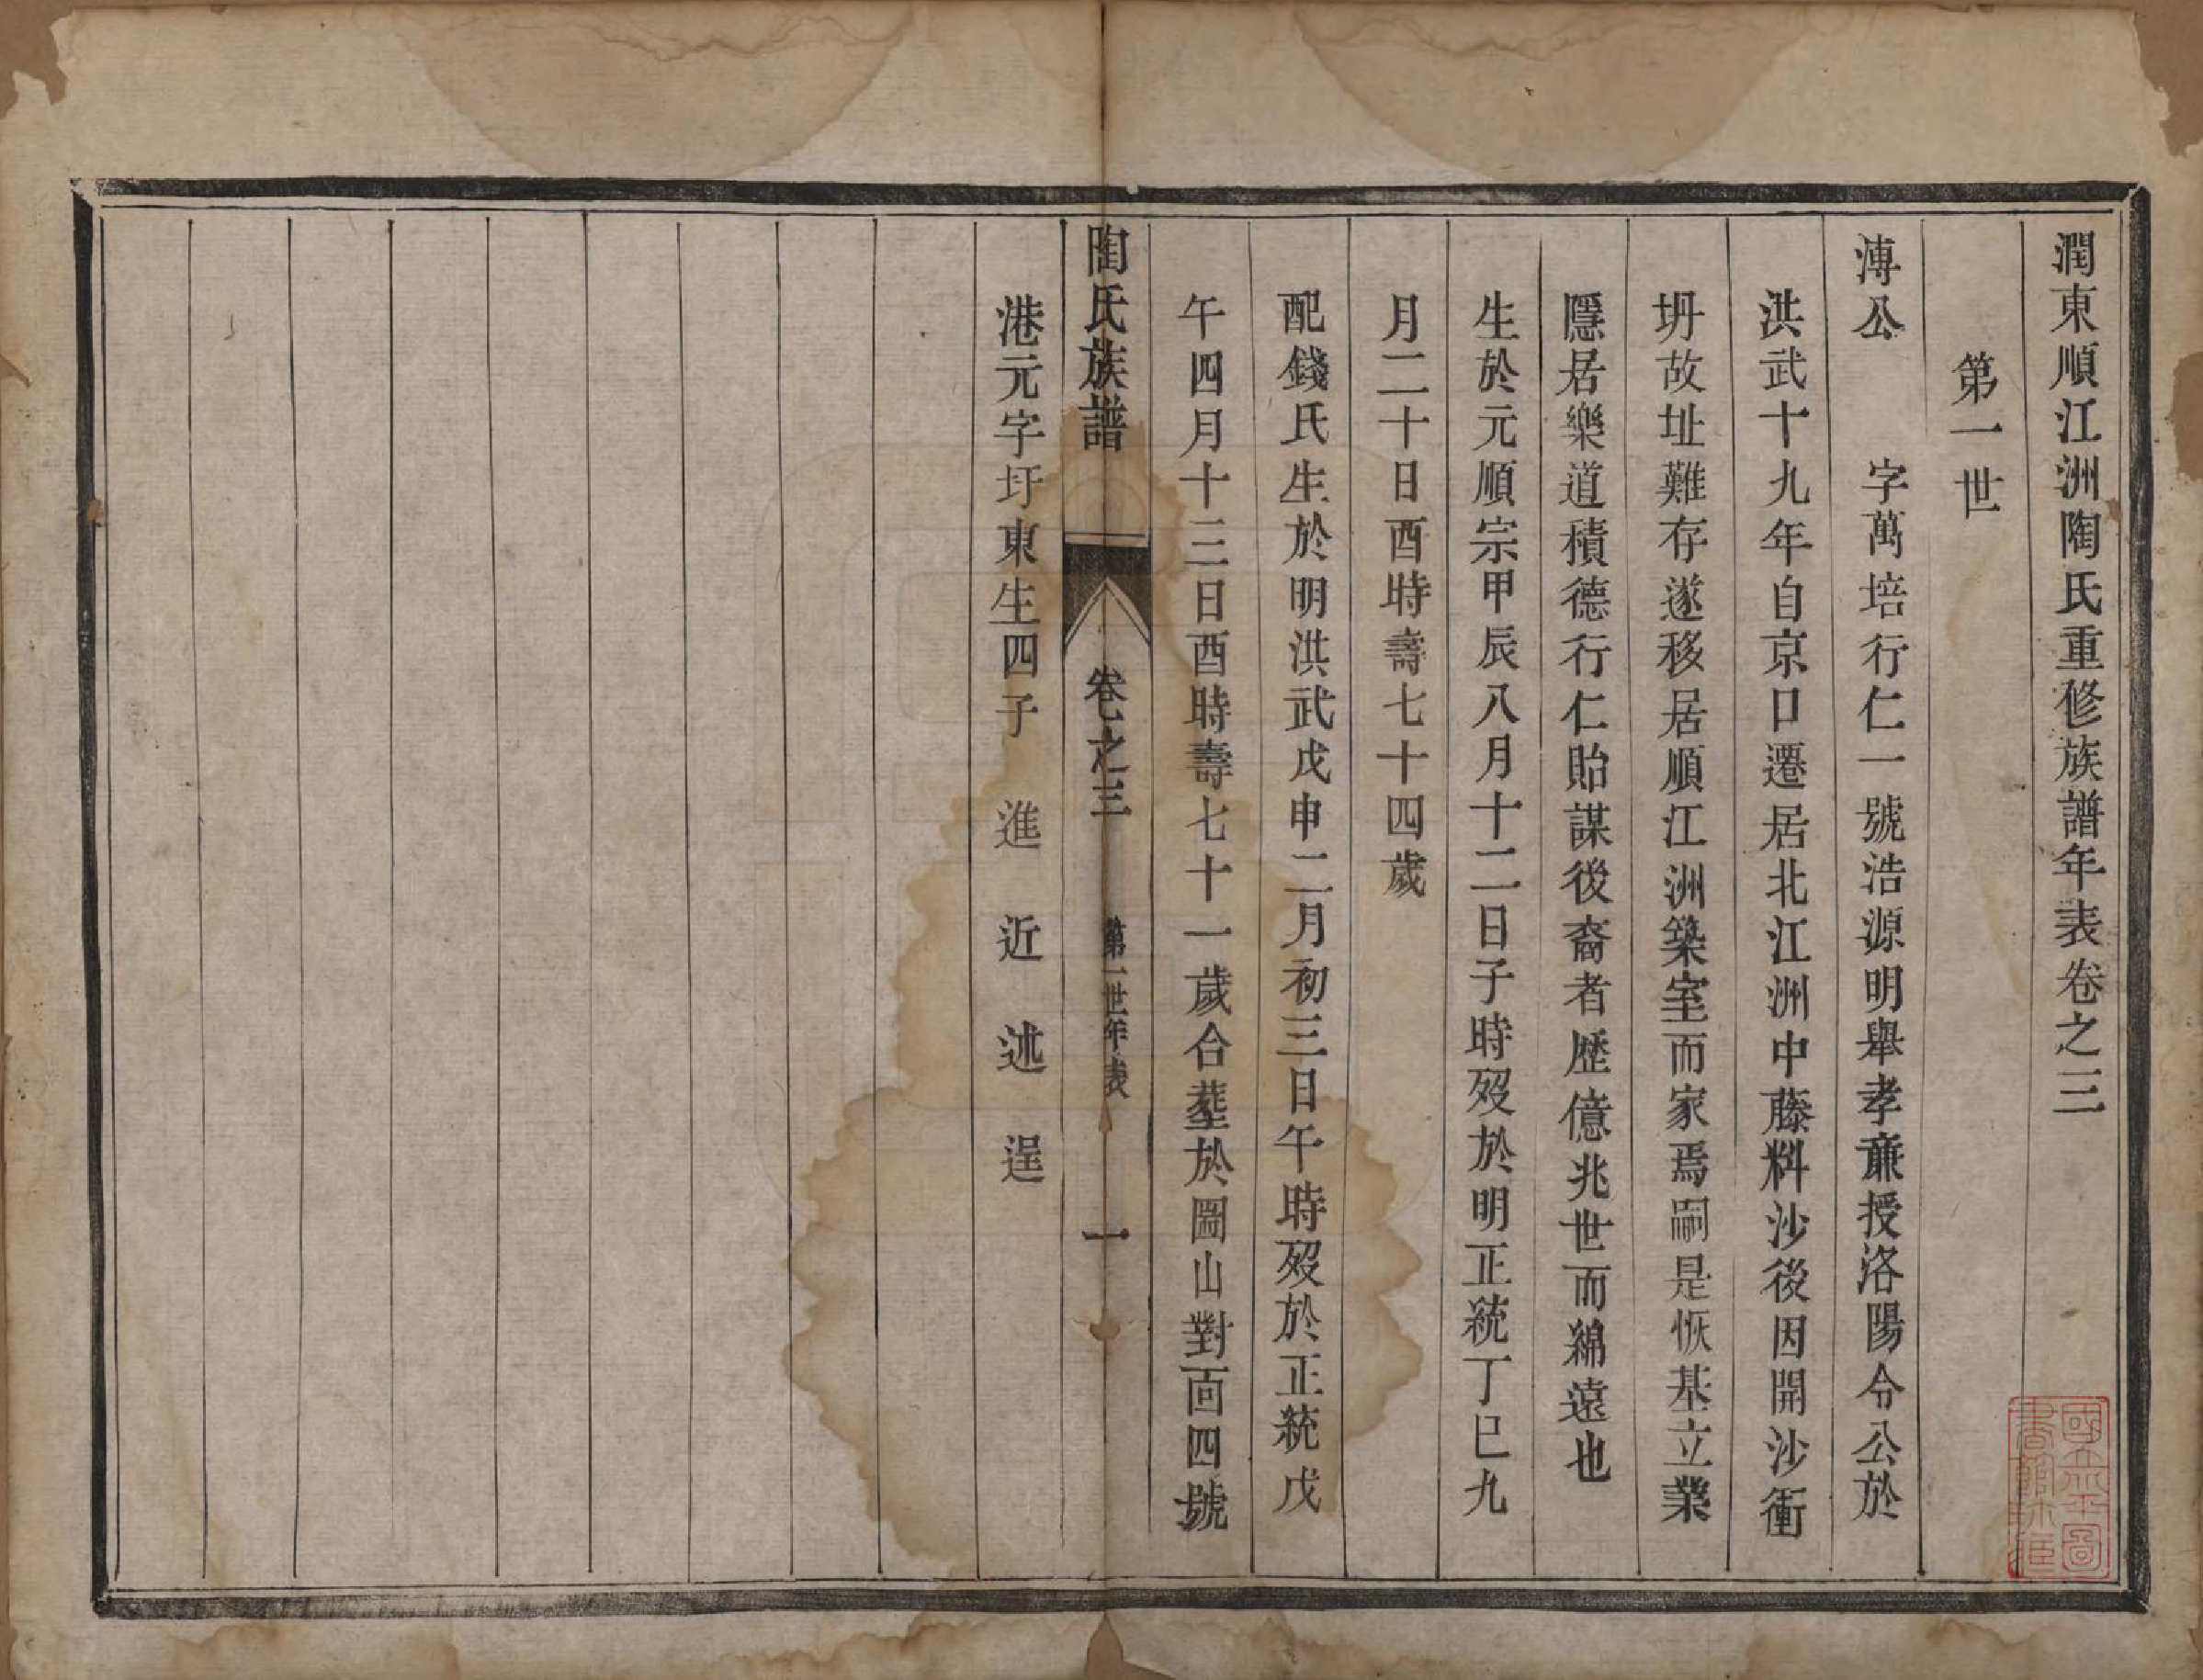 潤東順江洲陶氏重修族譜年表卷之三
第一世
溥公 字萬培行仁一號浩源明舉孝亷授洛陽令公於
洪武十九年自京口遷居北江洲中藤料沙後因開沙衝
坍故址難存遂移居順江洲築室而家焉嗣是恢基立業
隱居樂道積德行仁貽謀後裔者歷億兆世而綿遠也
生於元順宗甲辰八月十二日子時歿於明正統丁巳九
月二十日酉時壽七十四歲
配錢氏生於明洪武戊申二月初三日午時歿於正統戊
午四月十三日酉時壽七十一歲合塟於圌山對面四號
陶氏族譜 卷之三 第一世年表 一
港元字圩東生四子 進 近 述 逞
國立北平圖
書館收藏